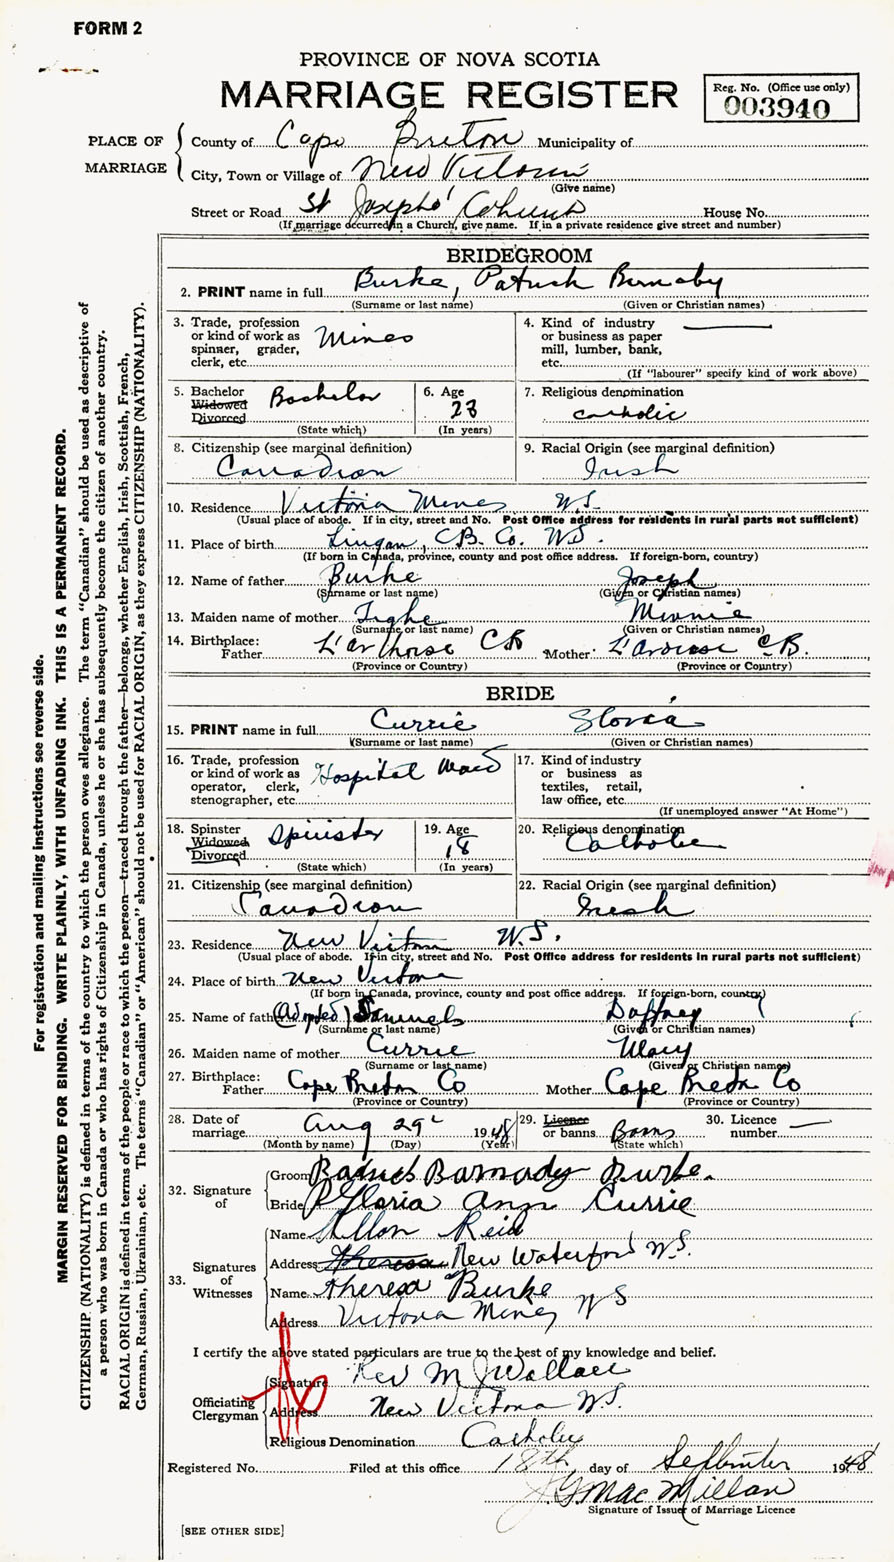 FORM 2
PROVINCE OF NOVA SCOTIA
MARRIAGE REGISTER
Reg. No. (Office use only)
003940
PLACE OF MARRIAGE
County of Cape Breton Municipality of
City, Town or Village of New Victoria
(Give name)
Street or Road St Josephs' Church House No.
(If marriage occurred in a Church, give name. If in a private residence give street and number)
BRIDEGROOM
2. PRINT name in full Burke, Patrick Barnaby
(Surname or last name) (Given or Christian names)
3. Trade, profession or kind of work as spinner, grader, clerk, etc. Miner
4. Kind of industry or business as paper mill, lumber, bank, etc.
(If "labourer" specify kind of work above)
5. Bachelor Widowed Divorced Bachelor
(State which)
6. Age 23
(In years)
7. Religious denomination
catholic
8. Citizenship (see marginal definition)
Canadian
9. Racial Origin (see marginal definition)
Irish
10. Residence Victoria Mines N.S.
(Usual place of abode. If in city, street and No. Post Office address for residents in rural parts not sufficient)
11. Place of birth Lingan, C.B. Co. N.S.
(If born in Canada, province, county and post office address. If foreign-born, country)
12. Name of father Burke Joseph
(Surname or last name) (Given or Christian names)
13. Maiden name of mother Tighe Minnie
(Surname or last name) (Given or Christian names)
14. Birthplace:
Father CB Mother L'ardoise C.B.
(Province or Country) (Province or Country)
BRIDE
15. PRINT name in full Currie
(Surname or last name) (Given or Christian names)
16. Trade, profession or kind of work as operator, clerk, stenographer, etc. Hospital Maid
17. Kind of industry or business as textiles, retail, law office, etc.
(If unemployed answer "At Home")
18. Spinster Widowed Divorced Spinster
(State which)
19. Age 18
(In years)
20. Religious denomination
Catholic
21. Citizenship (see marginal definition)
Canadian
22. Racial Origin (see marginal definition)
Irish
23. Residence New Victoria N.S.
(Usual place of abode. If in city, street and No. Post Office address for residents in rural parts not sufficient)
24. Place of birth New Victoria
(If born in Canada, province, county and post office address. If foreign-born, country)
25. Name of father (Adopted) Samuels
(Surname or last name) (Given or Christian names)
26. Maiden name of mother Currie Mary
(Surname or last name) (Given or Christian names)
27. Birthplace:
Father Cape Breton Co Mother Cape Breton Co
(Province or Country) (Province or Country)
28. Date of marriage Aug 29 1948
(Month by name) (Day) (Year)
29. Licence or banns Banns
(State which)
30. Licence number
32. Signature of
Groom Barnaby Burke.
Bride Gloria Ann Currie
33. Signatures of Witnesses
Name Allan Reid
Address Theresa New Waterford N.S.
Name Theresa Burke
Address Victoria Mines N S
I certify the above stated particulars are true to the best of my knowledge and belief.
Officiating Clergyman
Signature Rev M J Wallace
Address New Victoria N.S.
Religious Denomination Catholic
Registered No. Filed at this office 18th day of September 1948
J.G. MacMillan
Signature of Issuer of Marriage Licence
[SEE OTHER SIDE]
For registration and mailing instructions see reverse side.
MARGIN RESERVED FOR BINDING. WRITE PLAINLY, WITH UNFADING INK. THIS IS A PERMANENT RECORD.
CITIZENSHIP (NATIONALITY) is defined in terms of the country to which the person owes allegiance. The term "Canadian" should be used as descriptive of
a person who was born in Canada or who has rights of Citizenship in Canada, unless he or she has subsequently become the citizen of another country.
RACIAL ORIGIN is defined in terms of the people or race to which the person—traced through the father—belongs, whether English, Irish, Scottish, French,
German, Russian, Ukrainian, etc. The terms "Canadian" or "American" should not be used for RACIAL ORIGIN, as they express CITIZENSHIP (NATIONALITY).